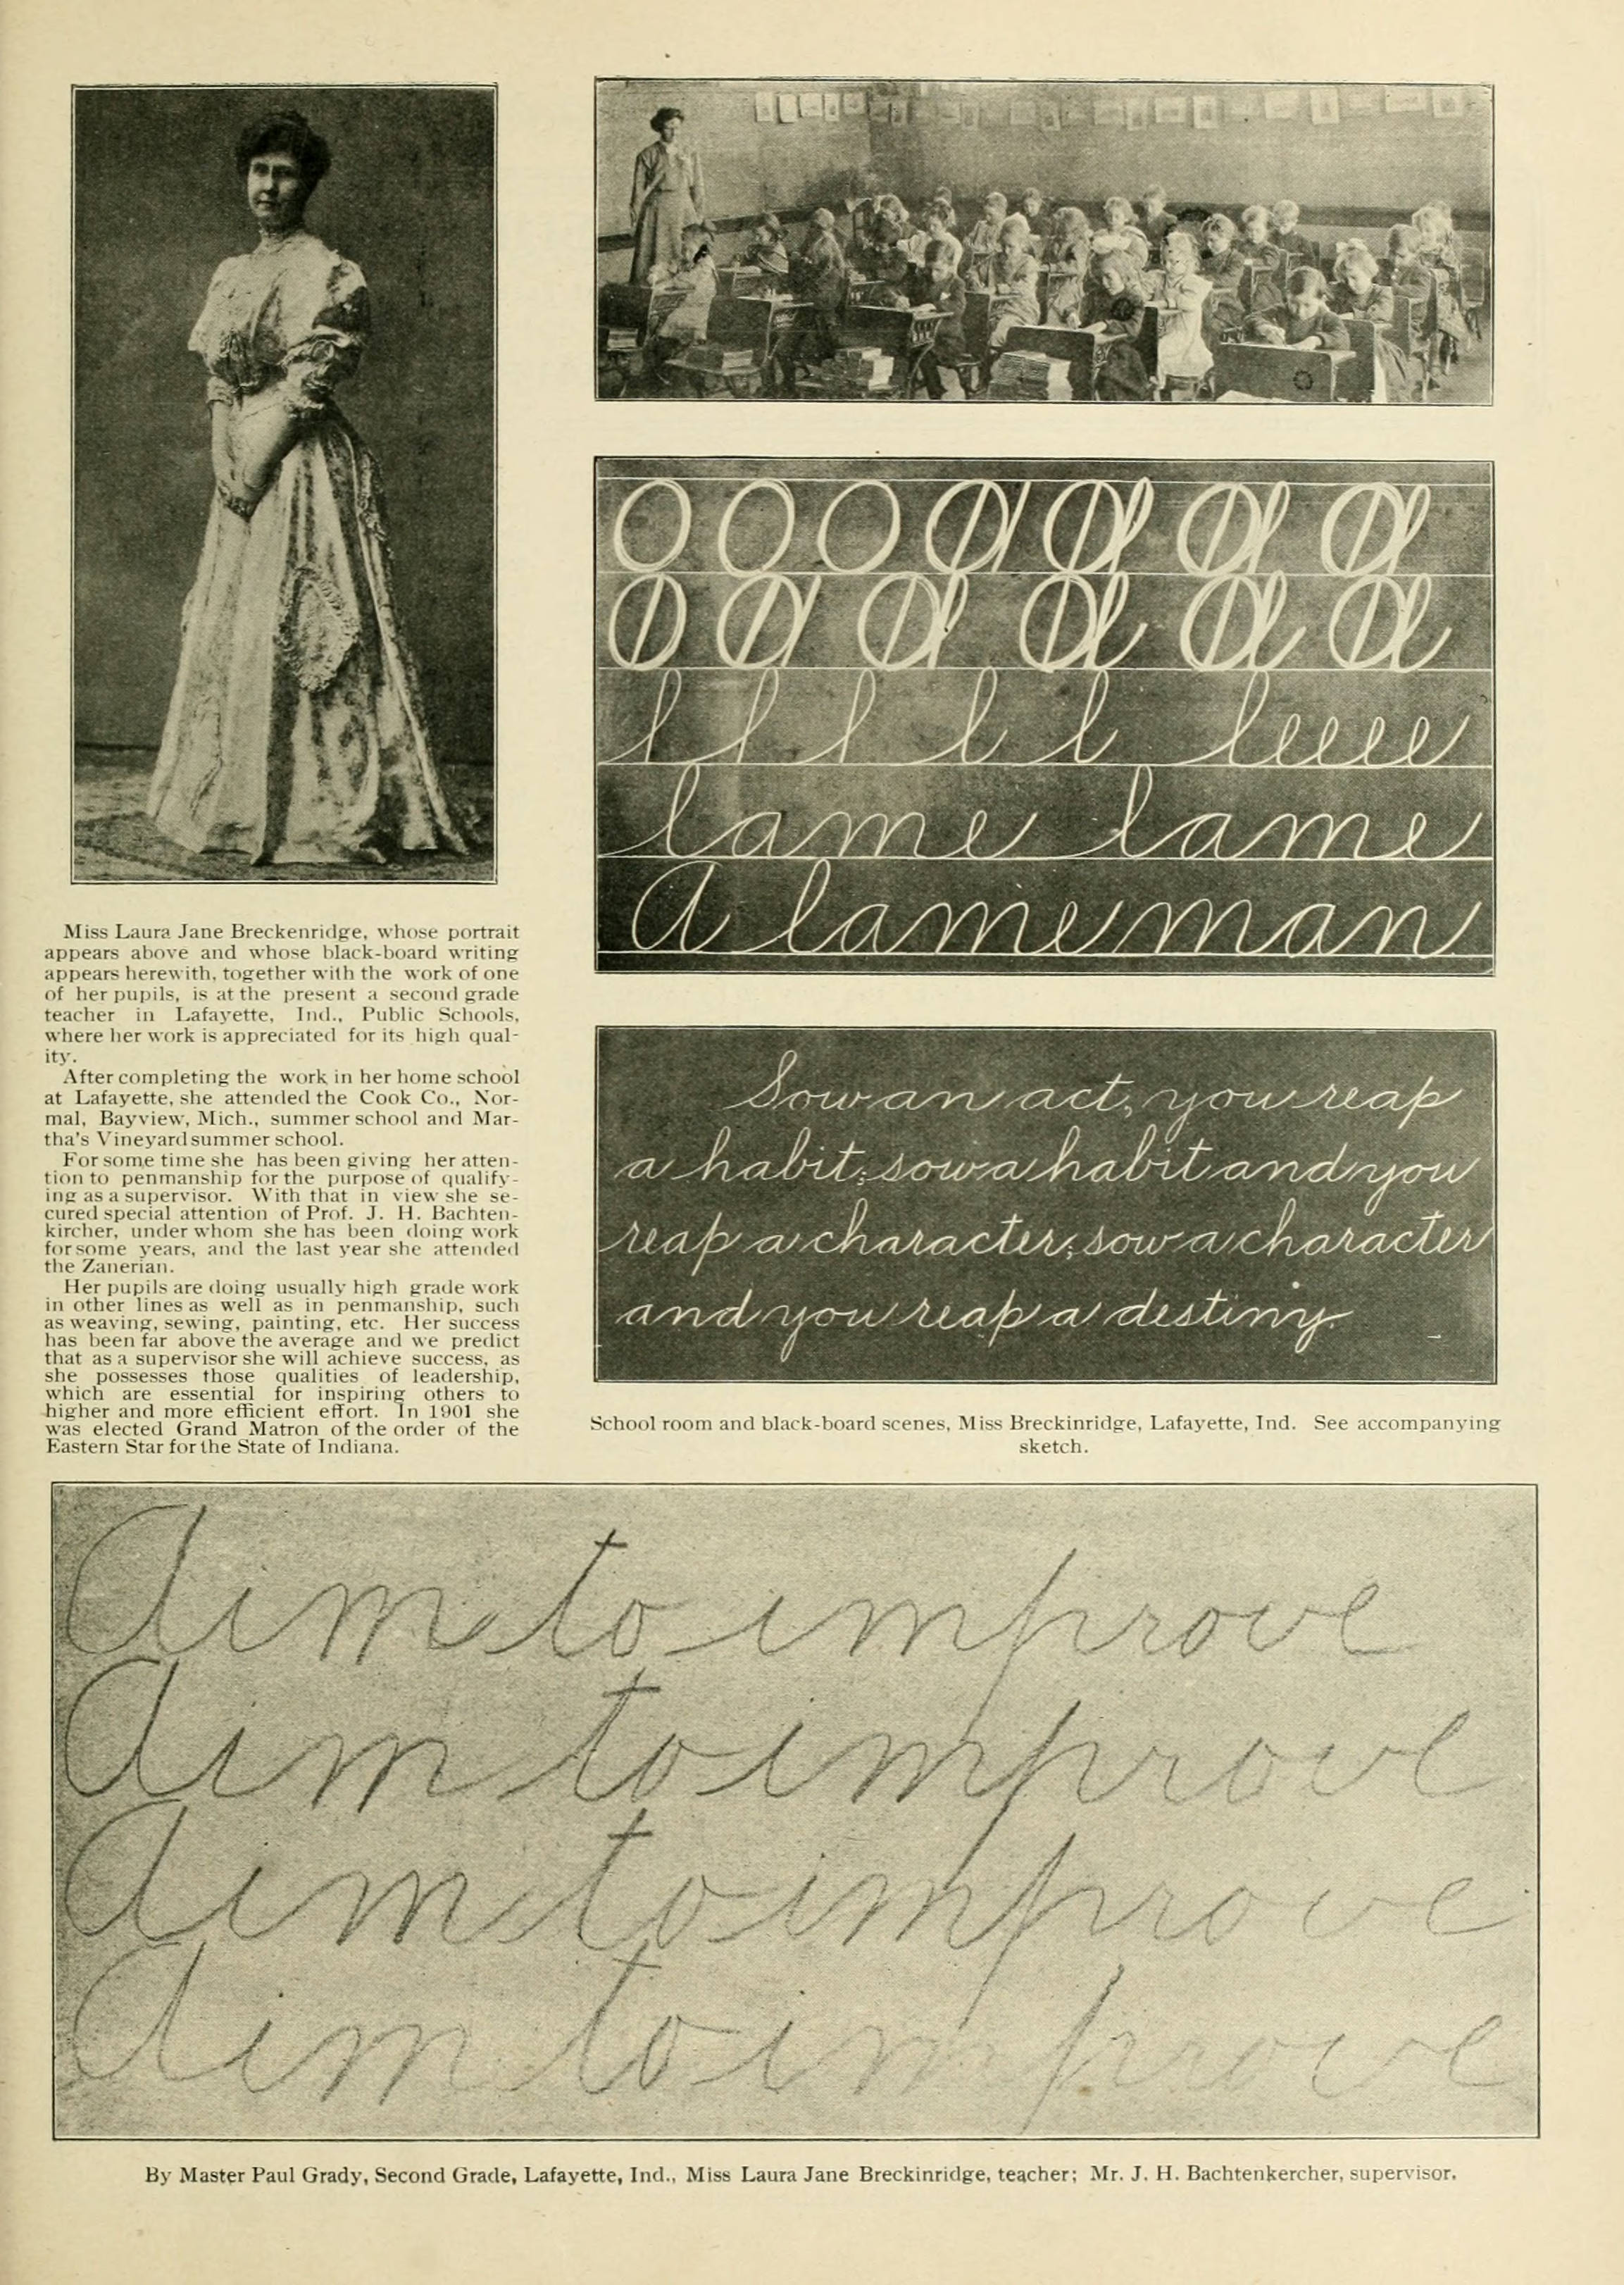 Miss Laura Jane Breckenridge, whose portrait
appears above and whose black-board writing
appears herewith, together with the work of one
of her pupils, is at the present a second grade
teacher in Lafayette, Ind., Public Schools,
where her work is appreciated for its high qual-
ity.
After completing the work in her home school
at Lafayette, she attended the Cook Co., Nor-
mal, Bayview, Mich., summer school and Mar-
tha's Vineyard summer school.
For some time she has been giving her atten-
tion to penmanship for the purpose of qualify-
ing as a supervisor. With that in view she se-
cured special attention of Prof. J. H. Bachten-
kircher, under whom she has been doing work
for some years, and the last year she attended
the Zanerian.
Her pupils are doing usually high grade work
in other lines as well as in penmanship, such
as weaving, sewing, painting, etc. Her success
has been far above the average and we predict
that as a supervisor she will achieve success, as
she possesses those qualities of leadership,
which are essential for inspiring others to
higher and more efficient effort. In 1901 she
was elected Grand Matron of the order of the
Eastern Star for the State of Indiana.
O O O O a a a
O a a a a a
l l l l l leeee
lame lame
A lame man
Sow an act, you reap
a habit; sow a habit and you
reap a character; sow a character
and you reap a destiny.
School room and black-board scenes, Miss Breckinridge, Lafayette, Ind. See accompanying
sketch.
Aim to improve
Aim to improve
Aim to improve
Aim to improve
By Master Paul Grady, Second Grade, Lafayette, Ind., Miss Laura Jane Breckinridge, teacher; Mr. J. H. Bachtenkercher, supervisor.